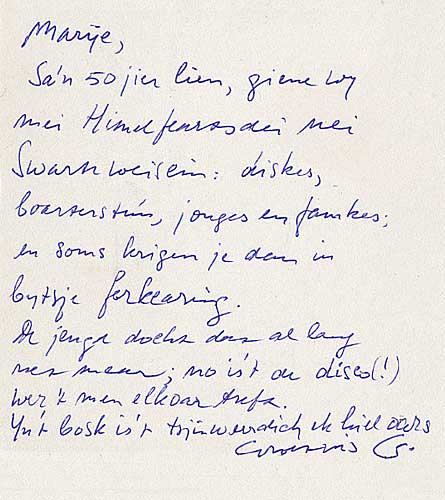 Marije,
Sa'n 50 jier lien, giene wy
mei Himelfeartsdei nei
Swarteweisein: diskes,
boarterstún, jonges en famkes;
en soms krigen je dan in
bytsje ferkearing.
De jeugd docht dat al lang
net mear; no is't de disco(!)
wer't men elkoar treft.
Yn't bosk is't tsjinwurdich ek hiel oars
G.